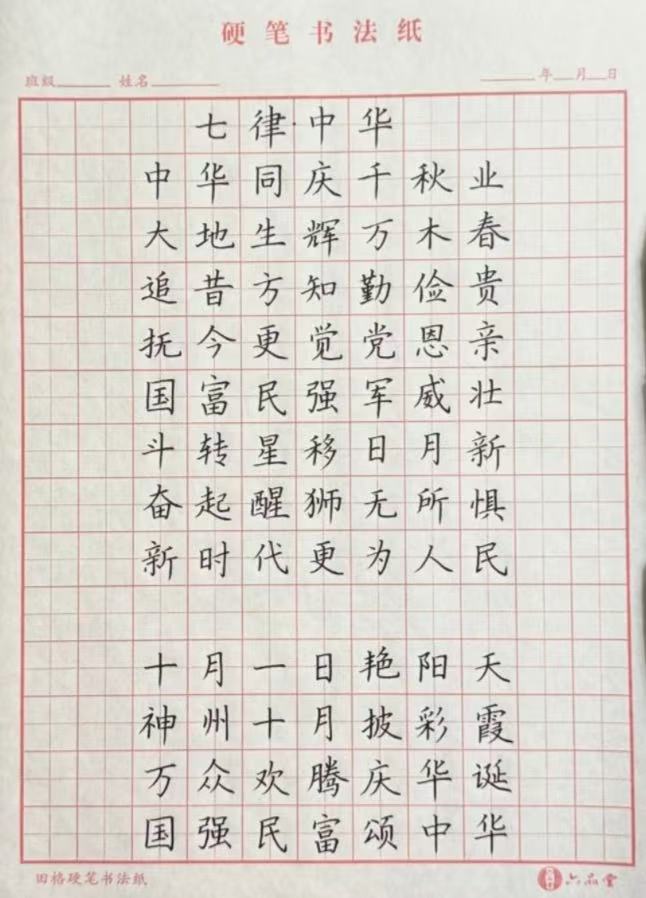 硬笔书法纸
班级______ 姓名________ ______年__月__日
七律·中华
中华同庆千秋业
大地生辉万木春
追昔方知勤俭贵
抚今更觉党恩亲
国富民强军威壮
斗转星移日月新
奋起醒狮无所惧
新时代更为人民
十月一日艳阳天
神州十月披彩霞
万众欢腾庆华诞
国强民富颂中华
田格硬笔书法纸 六品堂